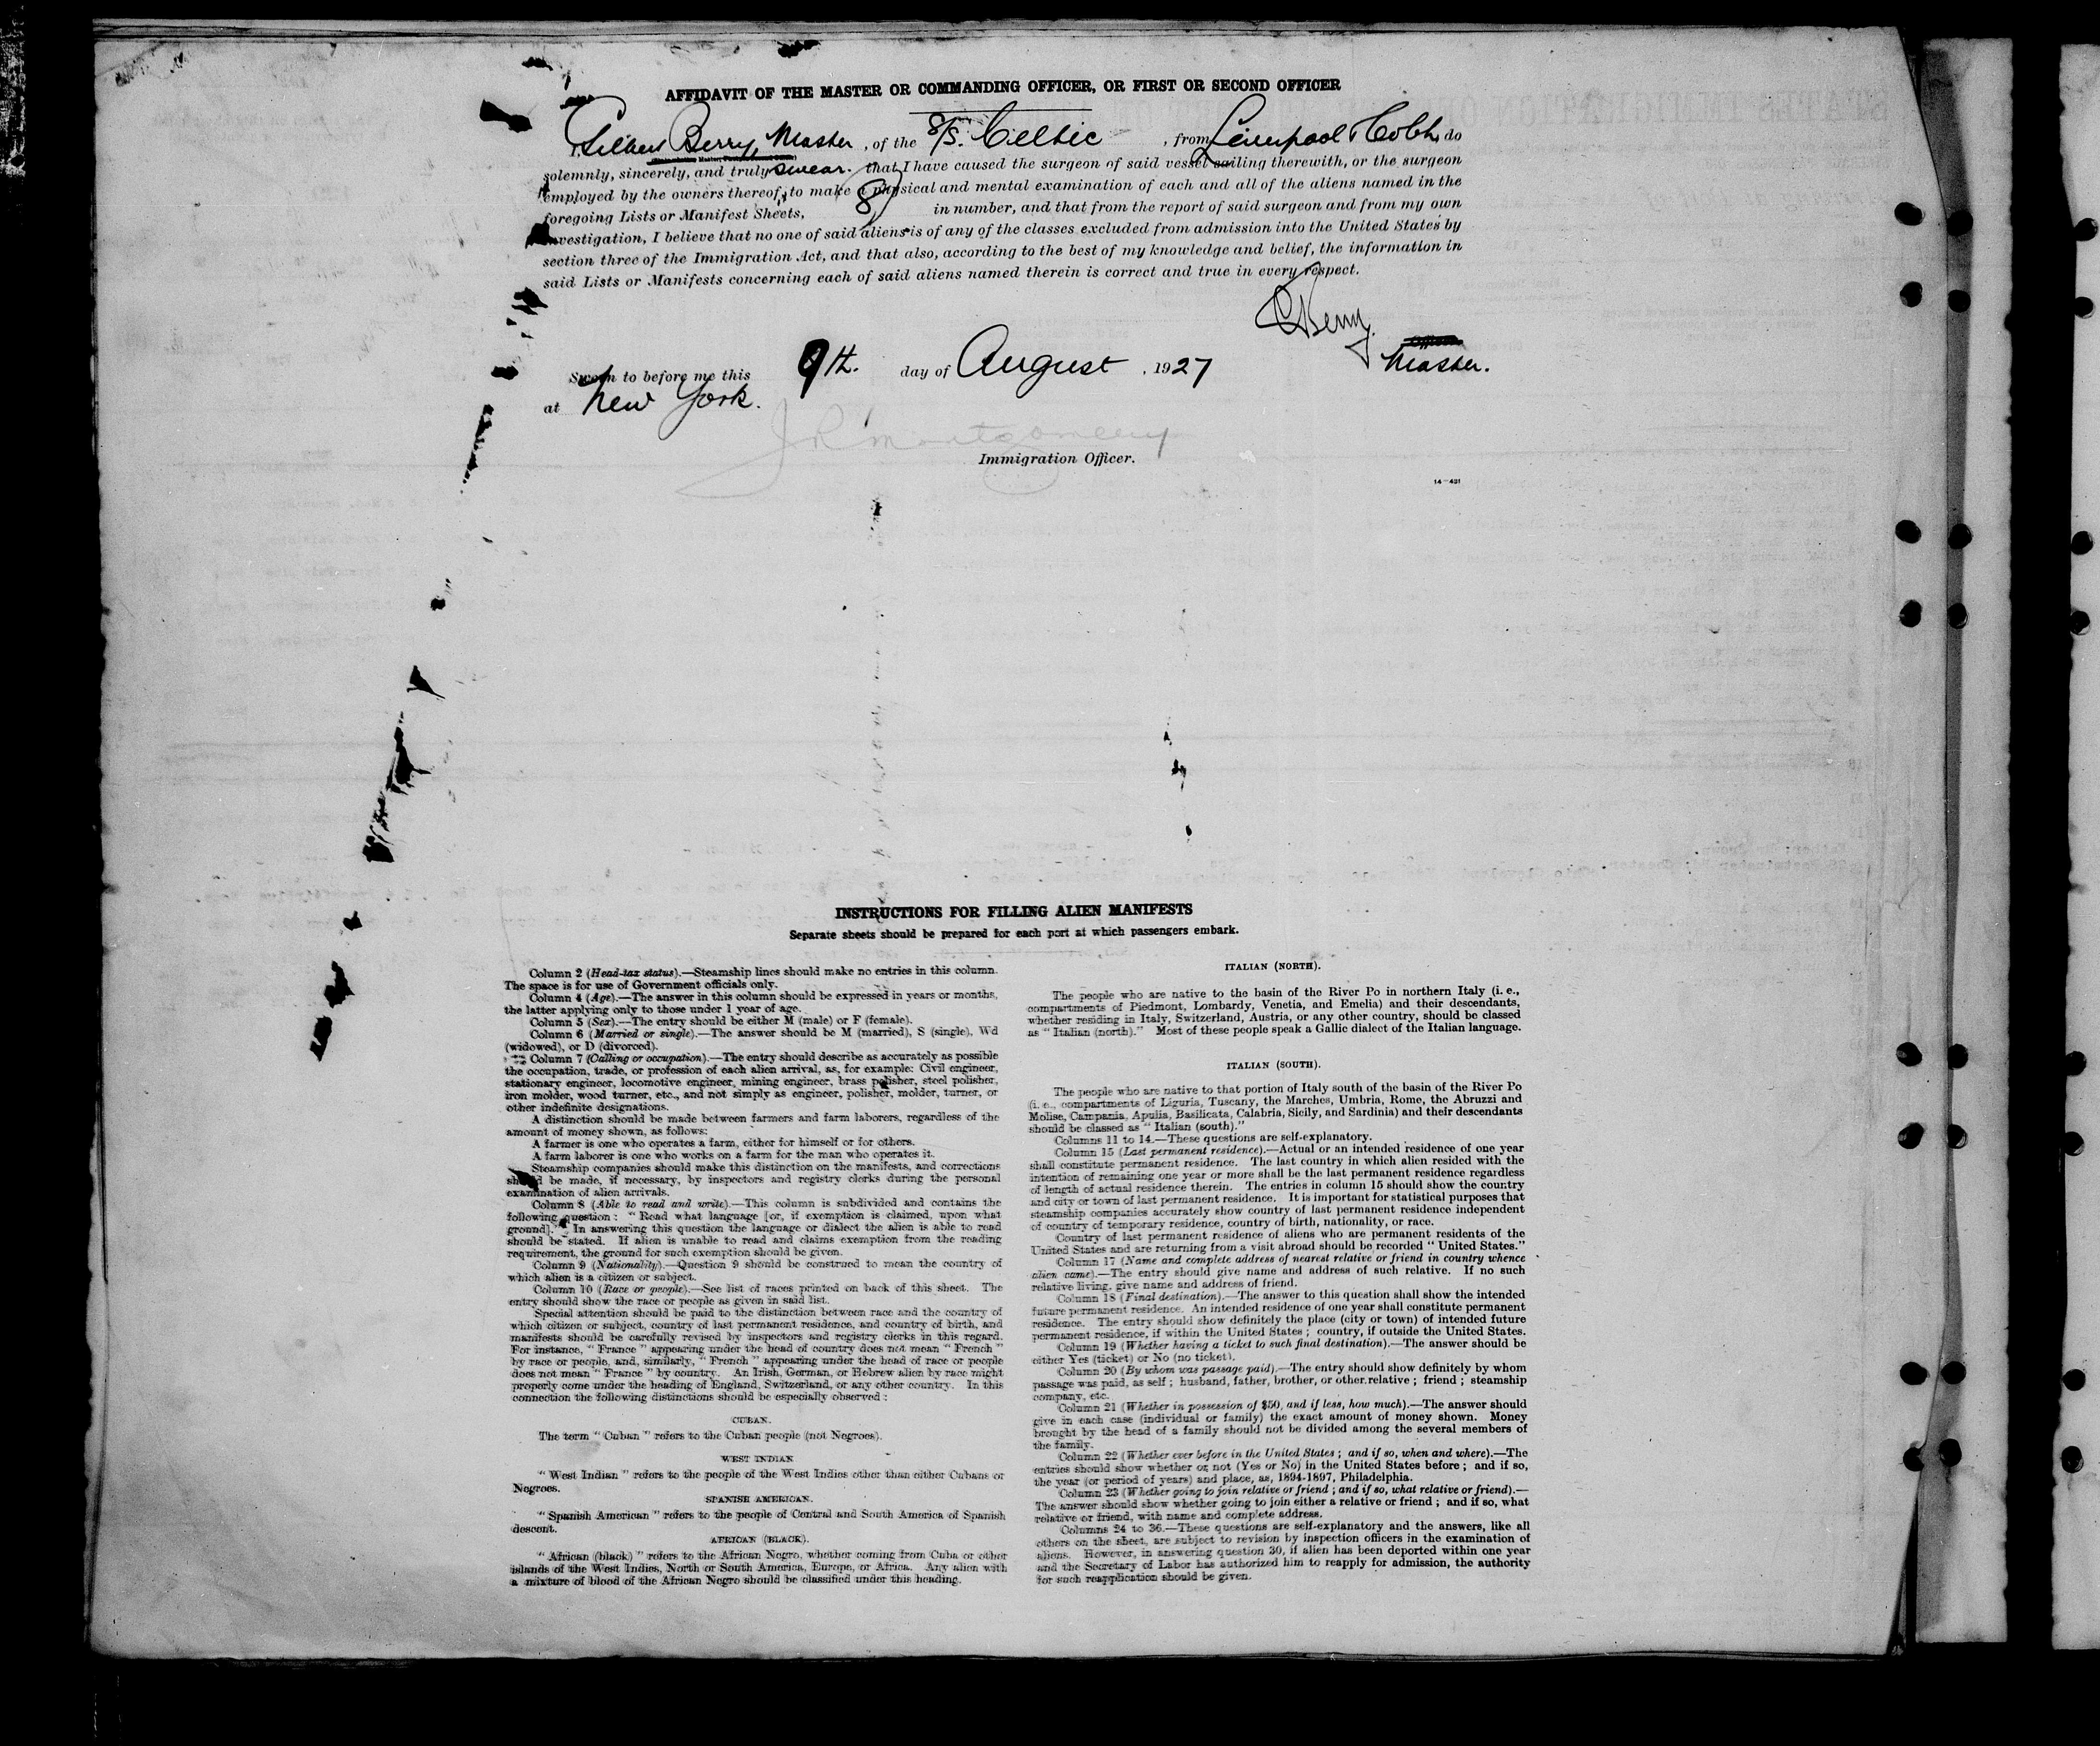 AFFIDAVIT OF THE MASTER OR COMMANDING OFFICER, OR FIRST OR SECOND OFFICER
I, Gilbert Berry, Master, of the S/S. Celtic, from Liverpool & Cobh, do
solemnly, sincerely, and truly swear. that I have caused the surgeon of said vessel sailing therewith, or the surgeon
employed by the owners thereof, to make a physical and mental examination of each and all of the aliens named in the
foregoing Lists or Manifest Sheets, 8 in number, and that from the report of said surgeon and from my own
investigation, I believe that no one of said aliens is of any of the classes excluded from admission into the United States by
section three of the Immigration Act, and that also, according to the best of my knowledge and belief, the information in
said Lists or Manifests concerning each of said aliens named therein is correct and true in every respect.
GBerry.
Master.
Sworn to before me this 9th. day of August, 1927
at New York.
J R Montgomery
Immigration Officer.
14—421
INSTRUCTIONS FOR FILLING ALIEN MANIFESTS
Separate sheets should be prepared for each port at which passengers embark.
Column 2 (Head-tax status).—Steamship lines should make no entries in this column.
The space is for use of Government officials only.
Column 4 (Age).—The answer in this column should be expressed in years or months,
the latter applying only to those under 1 year of age.
Column 5 (Sex).—The entry should be either M (male) or F (female).
Column 6 (Married or single).—The answer should be M (married), S (single), Wd
(widowed), or D (divorced).
Column 7 (Calling or occupation).—The entry should describe as accurately as possible
the occupation, trade, or profession of each alien arrival, as, for example: Civil engineer,
stationary engineer, locomotive engineer, mining engineer, brass polisher, steel polisher,
iron molder, wood turner, etc., and not simply as engineer, polisher, molder, turner, or
other indefinite designations.
A distinction should be made between farmers and farm laborers, regardless of the
amount of money shown, as follows:
A farmer is one who operates a farm, either for himself or for others.
A farm laborer is one who works on a farm for the man who operates it.
Steamship companies should make this distinction on the manifests, and corrections
should be made, if necessary, by inspectors and registry clerks during the personal
examination of alien arrivals.
Column 8 (Able to read and write).—This column is subdivided and contains the
following question: "Read what language [or, if exemption is claimed, upon what
ground]." In answering this question the language or dialect the alien is able to read
should be stated. If alien is unable to read and claims exemption from the reading
requirement, the ground for such exemption should be given.
Column 9 (Nationality).—Question 9 should be construed to mean the country of
which alien is a citizen or subject.
Column 10 (Race or people).—See list of races printed on back of this sheet. The
entry should show the race or people as given in said list.
Special attention should be paid to the distinction between race and the country of
which citizen or subject, country of last permanent residence, and country of birth, and
manifests should be carefully revised by inspectors and registry clerks in this regard.
For instance, "France" appearing under the head of country does not mean "French"
by race or people, and, similarly, "French" appearing under the head of race or people
does not mean "France" by country. An Irish, German, or Hebrew alien by race might
properly come under the heading of England, Switzerland, or any other country. In this
connection the following distinctions should be especially observed:
CUBAN.
The term "Cuban" refers to the Cuban people (not Negroes).
WEST INDIAN
"West Indian" refers to the people of the West Indies other than either Cubans or
Negroes.
SPANISH AMERICAN.
"Spanish American" refers to the people of Central and South America of Spanish
descent.
AFRICAN (BLACK).
"African (black)" refers to the African Negro, whether coming from Cuba or other
islands of the West Indies, North or South America, Europe, or Africa. Any alien with
a mixture of blood of the African Negro should be classified under this heading.
ITALIAN (NORTH).
The people who are native to the basin of the River Po in northern Italy (i. e.,
compartments of Piedmont, Lombardy, Venetia, and Emelia) and their descendants,
whether residing in Italy, Switzerland, Austria, or any other country, should be classed
as "Italian (north)." Most of these people speak a Gallic dialect of the Italian language.
ITALIAN (SOUTH).
The people who are native to that portion of Italy south of the basin of the River Po
(i. e., compartments of Liguria, Tuscany, the Marches, Umbria, Rome, the Abruzzi and
Molise, Campania, Apulia, Basilicata, Calabria, Sicily, and Sardinia) and their descendants
should be classed as "Italian (south)."
Columns 11 to 14.—These questions are self-explanatory.
Column 15 (Last permanent residence).—Actual or an intended residence of one year
shall constitute permanent residence. The last country in which alien resided with the
intention of remaining one year or more shall be the last permanent residence regardless
of length of actual residence therein. The entries in column 15 should show the country
and city or town of last permanent residence. It is important for statistical purposes that
steamship companies accurately show country of last permanent residence independent
of country of temporary residence, country of birth, nationality, or race.
Country of last permanent residence of aliens who are permanent residents of the
United States and are returning from a visit abroad should be recorded "United States."
Column 17 (Name and complete address of nearest relative or friend in country whence
alien came).—The entry should give name and address of such relative. If no such
relative living, give name and address of friend.
Column 18 (Final destination).—The answer to this question shall show the intended
future permanent residence. An intended residence of one year shall constitute permanent
residence. The entry should show definitely the place (city or town) of intended future
permanent residence, if within the United States; country, if outside the United States.
Column 19 (Whether having a ticket to such final destination).—The answer should be
either Yes (ticket) or No (no ticket).
Column 20 (By whom was passage paid).—The entry should show definitely by whom
passage was paid, as self; husband, father, brother, or other relative; friend; steamship
company, etc.
Column 21 (Whether in possession of $50, and if less, how much).—The answer should
give in each case (individual or family) the exact amount of money shown. Money
brought by the head of a family should not be divided among the several members of
the family.
Column 22 (Whether ever before in the United States; and if so, when and where).—The
entries should show whether or not (Yes or No) in the United States before; and if so,
the year (or period of years) and place, as, 1894-1897, Philadelphia.
Column 23 (Whether going to join relative or friend; and if so, what relative or friend).—
The answer should show whether going to join either a relative or friend; and if so, what
relative or friend, with name and complete address.
Columns 24 to 36.—These questions are self-explanatory and the answers, like all
others on the sheet, are subject to revision by inspection officers in the examination of
aliens. However, in answering question 30, if alien has been deported within one year
and the Secretary of Labor has authorized him to reapply for admission, the authority
for such reapplication should be given.